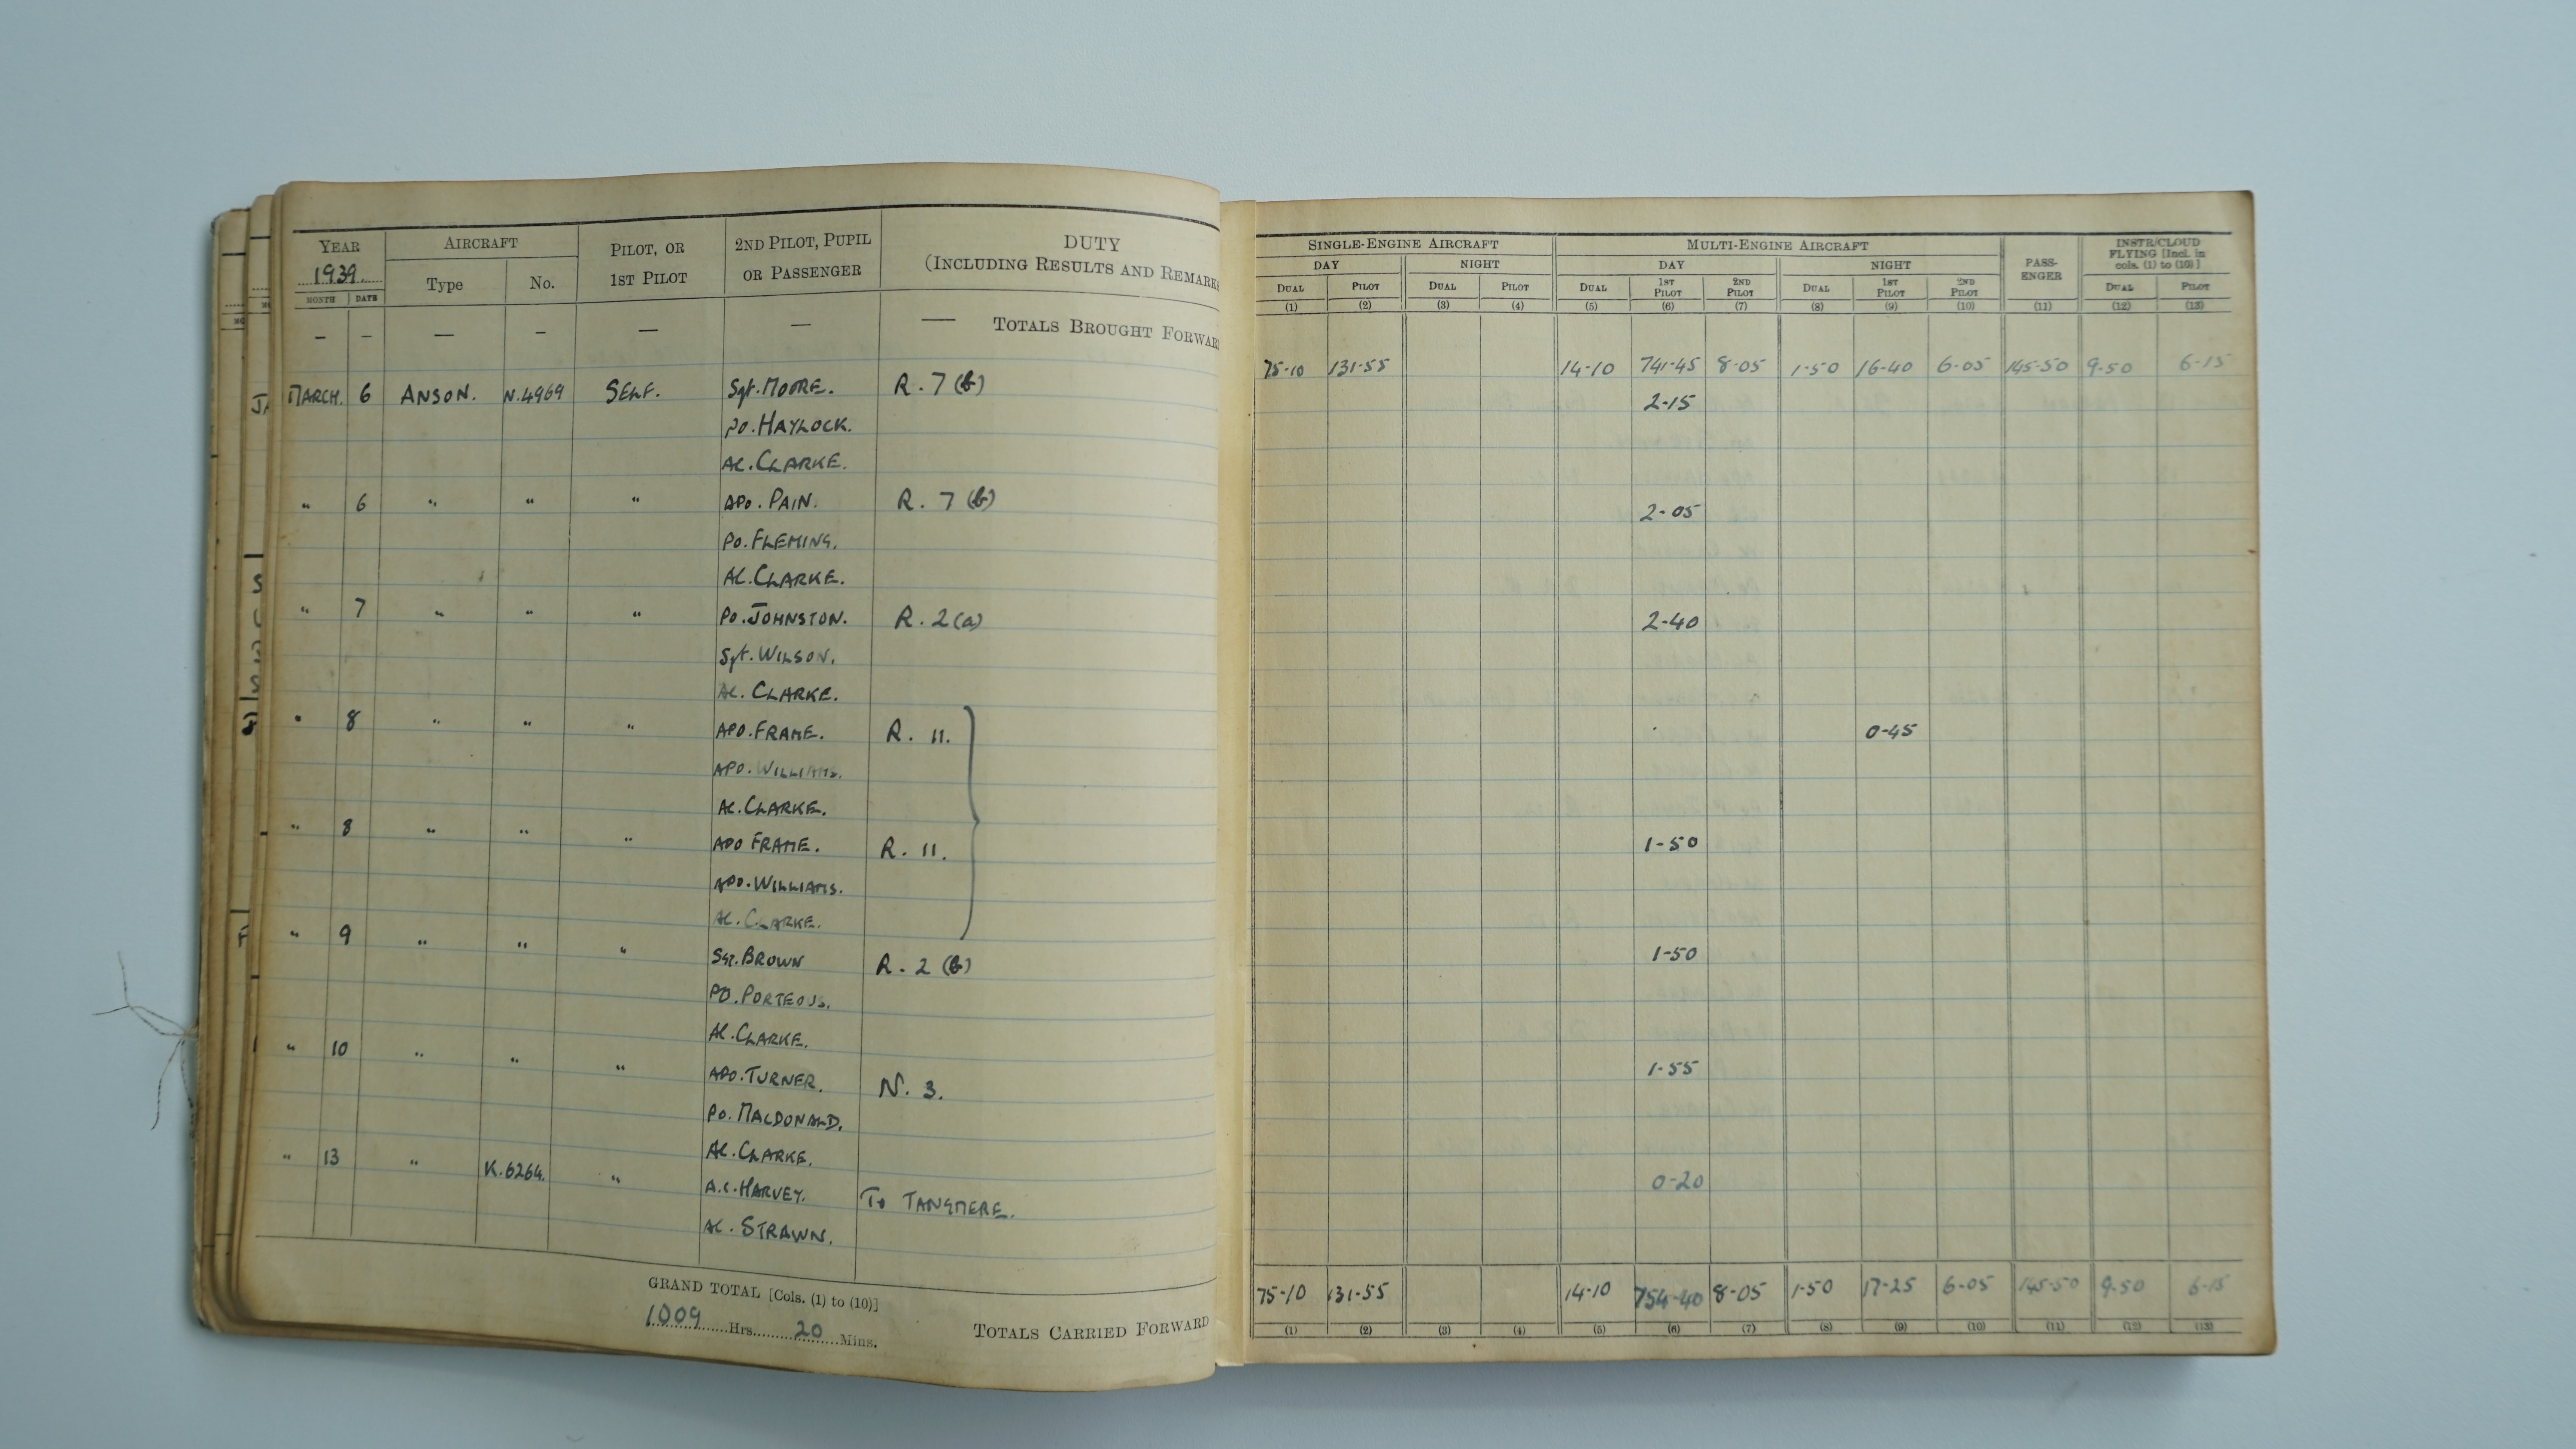 YEAR AIRCRAFT PILOT, OR 1ST PILOT 2ND PILOT, PUPIL OR PASSENGER DUTY (INCLUDING RESULTS AND REMARKS
1939. Type No.
MONTH DATE
SINGLE-ENGINE AIRCRAFT MULTI-ENGINE AIRCRAFT PASS-ENGER INSTR/CLOUD FLYING [Incl. in cols. (1) to (10)]
DAY NIGHT DAY NIGHT
DUAL PILOT DUAL PILOT DUAL 1ST PILOT 2ND PILOT DUAL 1ST PILOT 2ND PILOT DUAL PILOT
(1) (2) (3) (4) (5) (6) (7) (8) (9) (10) (11) (12) (13)
— — — — — — — TOTALS BROUGHT FORWAR
75-10 131-55 14-10 741-45 8-05 1-50 16-40 6-05 145-50 9-50 6-15
MARCH. 6 ANSON. N.4969 SELF. Sgt. MOORE. R. 7 (b) 2-15
PO. HAYLOCK.
AC. CLARKE.
" 6 " " " APO. PAIN. R. 7 (b) 2-05
PO. FLEMING.
AC. CLARKE.
" 7 " " " PO. JOHNSTON. R. 2 (a) 2-40
Sgt. WILSON.
AC. CLARKE.
" 8 " " " APO. FRAME. R. 11. 0-45
APO. WILLIAMS.
AC. CLARKE.
" 8 " " " APO FRAME. R. 11. 1-50
APO. WILLIAMS.
AC. CLARKE.
" 9 " " " SGT. BROWN R. 2 (b) 1-50
PO. PORTEOUS.
AC. CLARKE.
" 10 " " " APO. TURNER. N. 3. 1-55
PO. MACDONALD.
AC. CLARKE.
" 13 " K.6264. " A.C. HARVEY. To TANGMERE. 0-20
AC. STRAWN.
GRAND TOTAL [Cols. (1) to (10)]
1009 Hrs. 20 Mins.
TOTALS CARRIED FORWARD
75-10 131-55 14-10 754-40 8-05 1-50 17-25 6-05 145-50 9-50 6-15
(1) (2) (3) (4) (5) (6) (7) (8) (9) (10) (11) (12) (13)